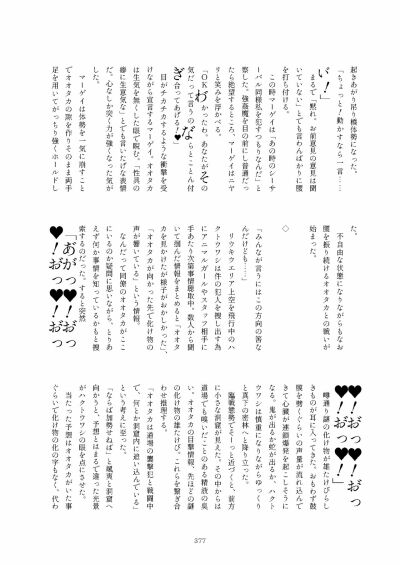 起きあがり吊り橋体勢になった。
「ちょっと！動かすなら一言……
い！」
まるで「黙れ、お前意見の意見は聞
いていない」とでも言わんばかりに腰
を打ち付ける。
この時マーゲイは「あの時のシーサ
ーバル同様私を犯すつもりなんだ」と
察した。強姦魔を目の前にし普通だっ
たら絶望するところ、マーゲイはニヤ
リと笑みを浮かべる。
「OKわかったわ。あなたがその
気だって言うのならとことん付
ぎ合ってあげる！♥
目がチカチカするような衝撃を受
けながら宣言するマーゲイ。オオタカ
は生気を無くした眼で睨む。「性具の
癖に生意気な」とでも言いたげな表情
だ。心なしか突く力が強くなった気が
した。
マーゲイは体勢を一気に崩すこと
でオオタカの隙を作りそのまま両手
足を用いてがっちり強くホールドし
た。
不自由な状態になりながらもなお
腰を振り続けるオオタカとの戦いが
始まった。
◇
「みんなが言うにはこの方向の筈な
んだけども……」
リウキウエリア上空を飛行中のハ
クトウワシは件の犯人を捜し出す為
にアニマルガールやスタッフ相手に
手あたり次第事情聴取中、数人から聞
いて掴んだ情報をまとめると「オオタ
カを見かけたが様子がおかしかった」、
「オオタカが向かった先で化け物の
声が響いている」という情報。
なんだって同僚のオオタカがここ
にいるのか疑問に思いながら、とりあ
えず何か事情を知っているかもと捜
索するのだった。すると突然
「あがっ♥！おっ♥
！おっ♥♥！おっ
♥♥！おっ♥！おっ
♥♥！」
噂通り謎の化け物が雄たけびらし
きものが耳に入ってきた。おもわず鼓
膜を劈くぐらいの声量が流れ込んで
きて心臓が連鎖爆発を起こしそうに
なる。鬼が出るか蛇が出るか、ハクト
ウワシは慎重になりながらゆっくり
と真下の密林へと降り立った。
臨戦態勢でそーっと近づくと、前方
に小さな洞窟が見えた。その中からは
道場でも嗅いだことのある精液の臭
い、オオタカの目撃情報、先ほどの謎
の化け物の雄たけび。これらを繋ぎ合
わせ推理する。
「オオタカは道場の襲撃犯と戦闘中
で、何とか洞窟内に追い込んでいる」
という考えに至った。
「ならば加勢せねば」と颯爽と洞窟へ
向かうと、予想とはまるで違った光景
がハクトウワシの眼を点にさせた。
当たった予想はオオタカがいた事
ぐらいで化け物の化の字もなく、代わ
377